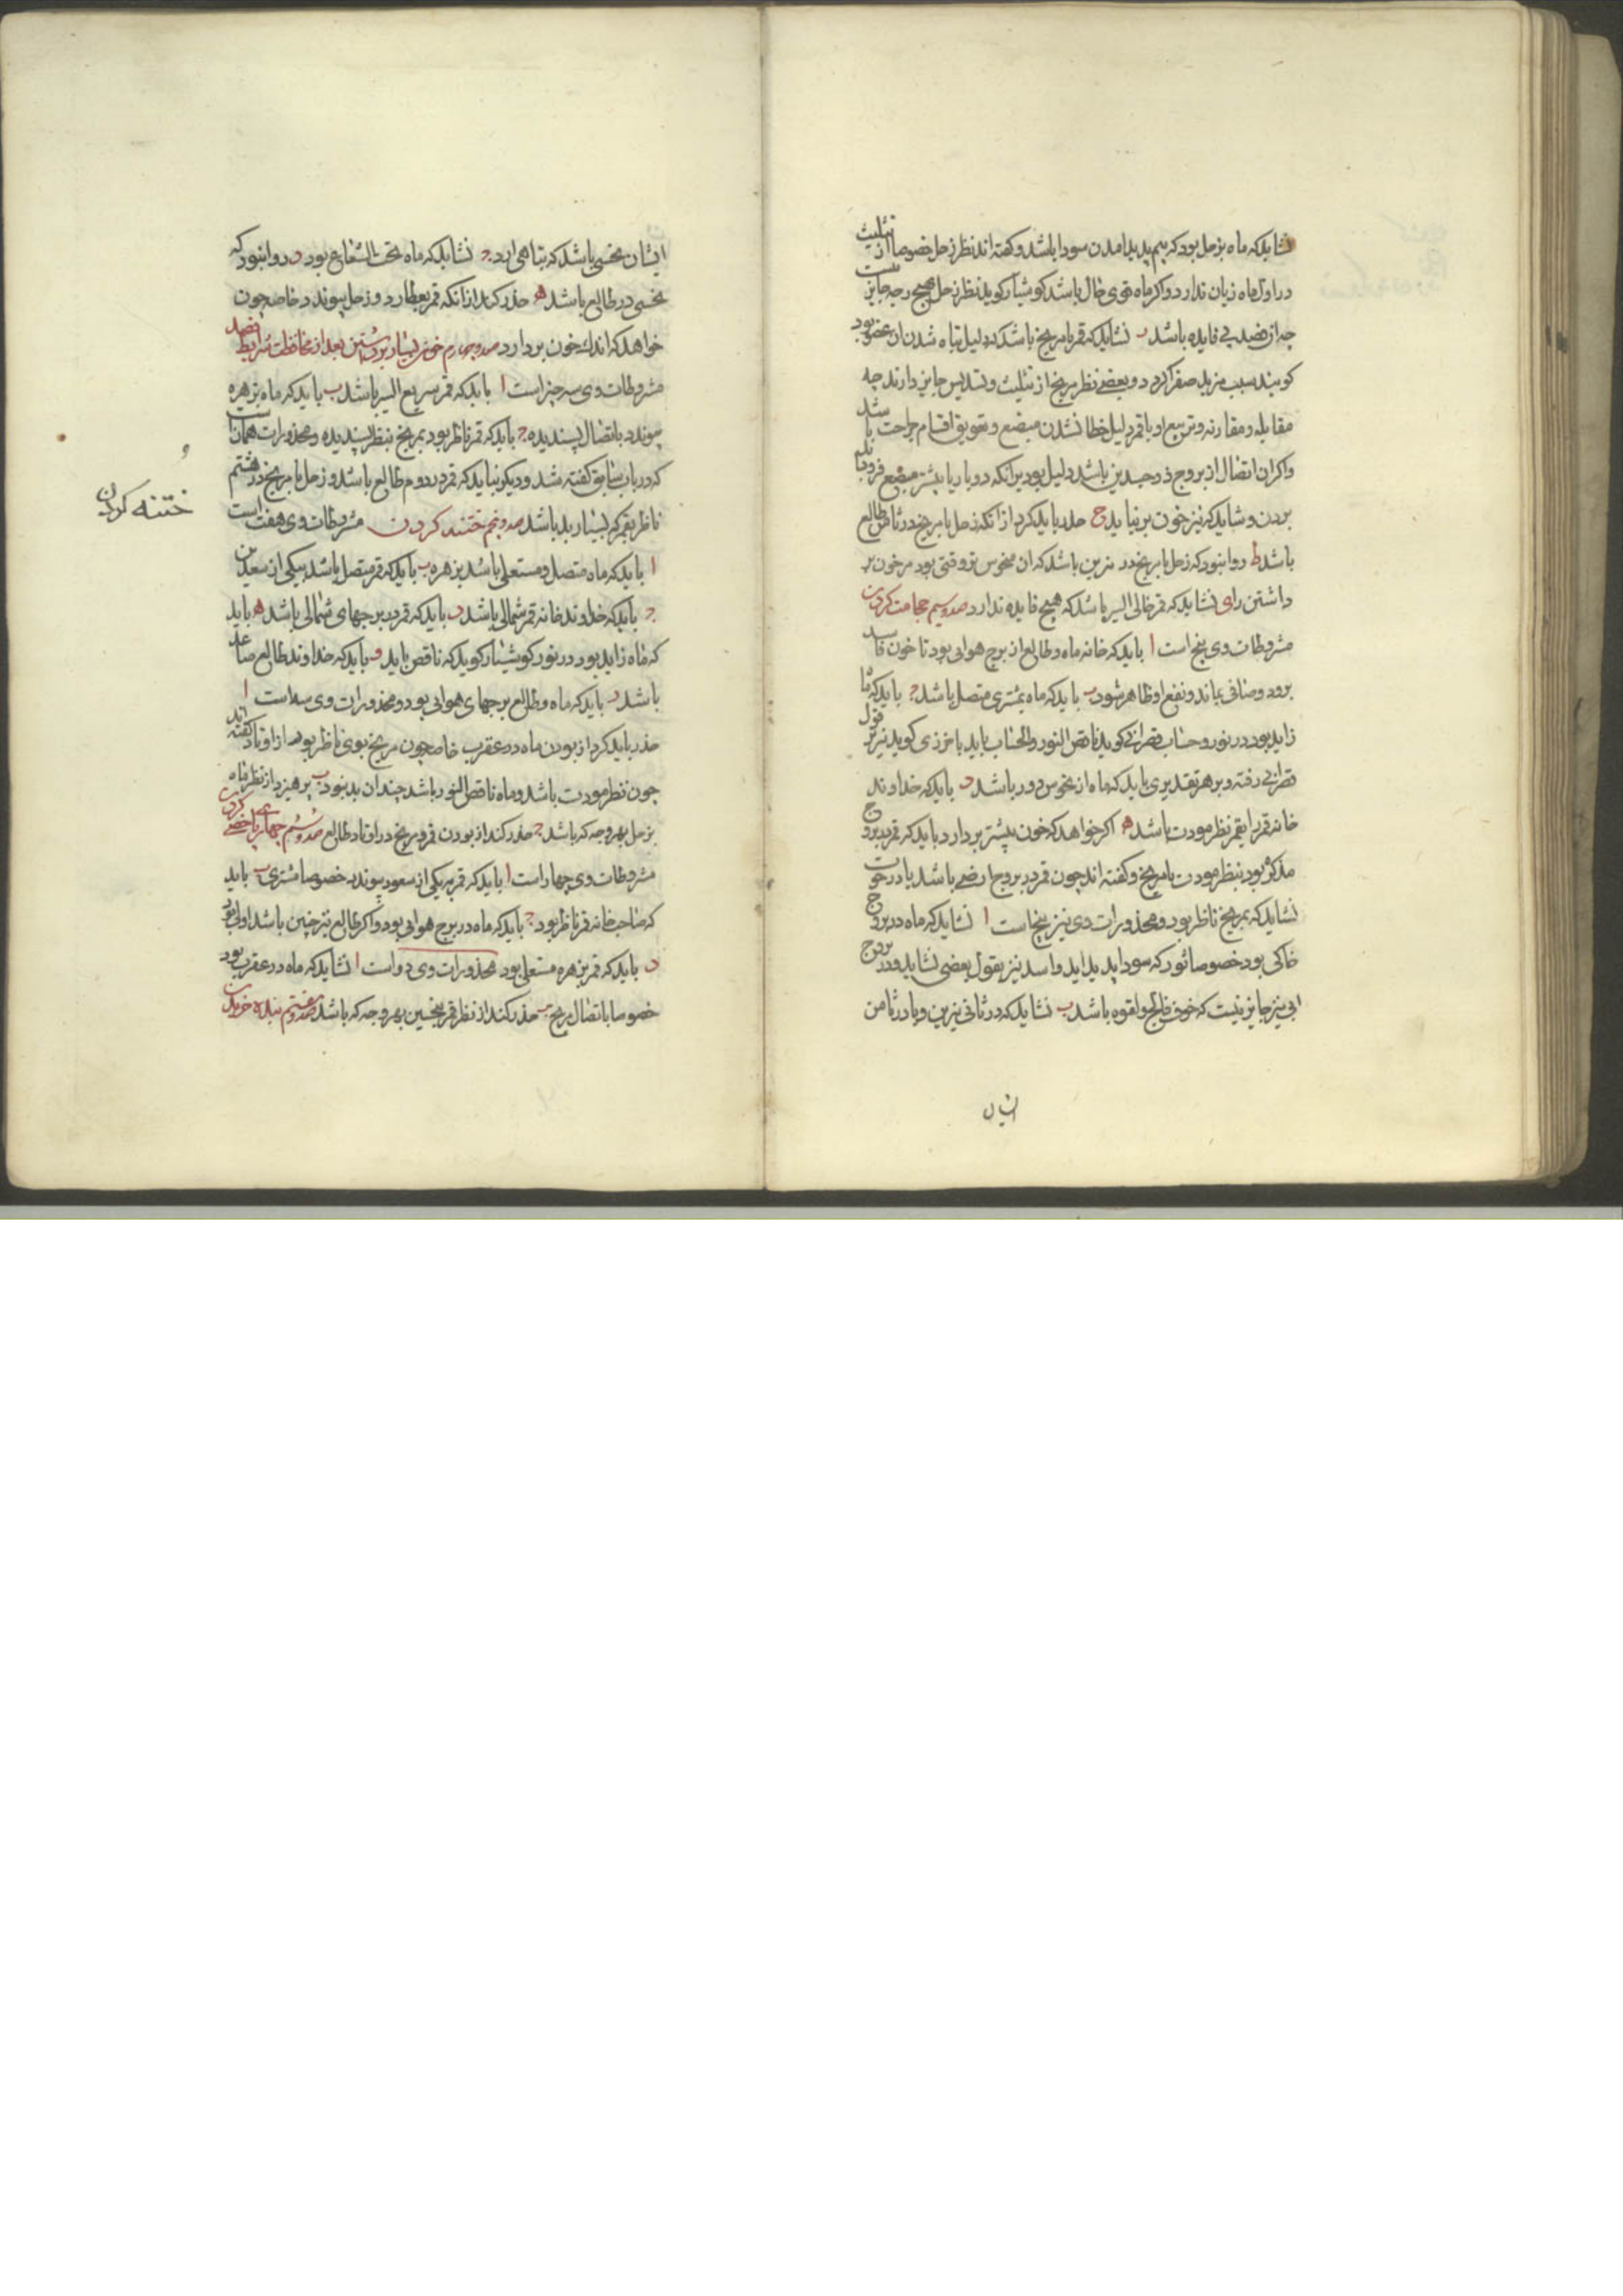 نشاید که ماه بزحل بود که بیم پدید امدن سودا باشد و کفته اند نظر زحل خصوصا از تثلیث
در اول ماه زیان ندارد و اکر ماه قوی حال باشد کوشیار کوید نظر زحل هیچ وجه جایز نیست
چه از فصد بی فایده باشد ب نشاید که قمر با مریخ باشد که دلیل تباه شدن ان عضو بود
کویند سبب مزید صفرا کردد و بعضی نظر مریخ از تثلیث و تسدیس جایز دارند چه
مقابله و مقارنه و تربیع او با قمر دلیل خطا شدن مبضع و تعویق اقسام جراحت باشد
واکر ان اتصال از بروج ذو جسدین باشد دلیل بود برانکه دو بار یا بیشتر مبضع فرو باید
بردن و شاید که نیز خون برنیاید ح حذر باید کرد از انکه زحل یا مریخ در ثامن طالع
باشد ط روا نبود که زحل یا مریخ در نیرین باشد که ان منحوس تر وقتی بود مر خون بر
داشتن رای نشاید که قمر خالی السیر باشد که هیچ فایده ندارد صد و سیم حجامت کردن
مشروطات وی پنج است ا باید که خانه ماه و طالع از برج هوایی بود تا خون فاسد
برود و صافی بماند و نفع او ظاهر شود ب باید که ماه بمشتری متصل باشد ج باید که ماه
زاید بود در نور و حساب قصرانی کوید ناقص النور والحساب باید بامزدی کوید نیز بر قول
قصرانی رفته و بر هر تقدیری باید که ماه از نحوس دور باشد د باید که خداوند
خانه قمر را بقمر نظر مودت باشد ه اکر خواهد که خون بیشتر بر دارد باید که قمر ببروج
مذکر بود بنظر مودت با مریخ و کفته اند چون قمر در بروج ارضی باشد یا در حوت
نشاید که بمریخ ناظر بود و محذورات وی نیز پنج است ا نشاید که ماه در بروج
خاکی بود خصوصا ثور که سودا پدید اید و اسد نیز بقول بعضی نشاید و در بروج
ابی نیز جایز نیست که خوف فالج و لقوه باشد ب نشاید که در ثانی نیرین و یا در ثامن
ایشان نحسی باشد که تباهی ارد ج نشاید که ماه تحت الشعاع بود د روا نبود که
نحسی در طالع باشد ه حذر کند از انکه قمر بعطارد و زحل پیوندد خاصه چون
خواهد که اندک خون بردارد صد و چهارم خون بسیار برداشتن بعد از محافظت شرایط فصد
مشروطات وی سه چیز است ا باید که قمر سریع السیر باشد ب باید که ماه بزهره
پیوندد باتصال پسندیده ج باید که قمر ناظر بود بمریخ بنظر پسندیده و محذورات همان است
که در باب سابق کفته شد و دیکر نباید که قمر در دوم طالع باشد و زحل یا مریخ در هشتم
ناظر بقمر که بسیار بد باشد صد و پنجم ختنه کردن مشروطات وی هفت است
ختنه کردن
ا باید که ماه متصل و مستعلی باشد بزهره ب باید که قمر متصل باشد بیکی از سعدین
ج باید که خداوند خانه قمر شمالی باشد د باید که قمر در برجهای شمالی باشد ه باید
که ماه زاید بود در نور کوشیار کوید که ناقص باید و باید که خداوند طالع صاعد
باشد ز باید که ماه و طالع برجهای هوایی بود و محذورات وی سه است ا
حذر باید کرد از بودن ماه در عقرب خاصه چون مریخ بوی ناظر بود از اوتاد کفته اند
چون نظر مودت باشد و ماه ناقص النور باشد چندان بد نبود ب پرهیزد از نظر ماه
بزحل بهر وجه که باشد ج حذر کند از بودن قمر و مریخ در اوتاد طالع صد و ششم چهارپا خصی کردن
مشروطات وی چهار است ا باید که قمر بیکی از سعود پیوندد خصوصا مشتری ب باید
که صاحب خانه قمر ناظر بود ج باید که ماه در برج هوایی بود و اکر طالع نیز چنین باشد اولی بود
د باید که قمر بزهره مستعلی بود محذورات وی دو است ا نشاید که ماه در عقرب بود
خصوصا باتصال مریخ ب حذر کند از نظر قمر بنحسین بهر وجه که باشد صد و هفتم بنده خریدن